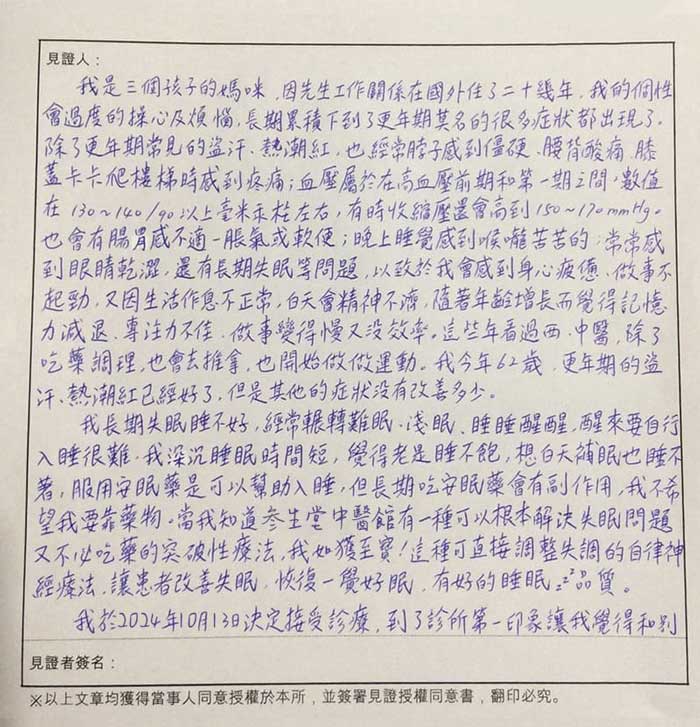 見證人：
我是三個孩子的媽咪，因先生工作關係在國外住了二十幾年，我的個性
會過度的操心及煩惱，長期累積下到了更年期莫名的很多症狀都出現了。
除了更年期常見的盜汗、熱潮紅，也經常脖子感到僵硬、腰背酸痛、膝
蓋卡卡爬樓梯時感到疼痛；血壓屬於在高血壓前期和第一期之間，數值
在130~140/90以上毫米汞柱左右，有時收縮壓還會高到150~170mmHg。
也會有腸胃感不適－脹氣或軟便；晚上睡覺感到喉嚨苦苦的；常常感
到眼睛乾澀，還有長期失眠等問題，以致於我會感到身心疲憊、做事不
起勁，又因生活作息不正常，白天會精神不濟，隨著年齡增長而覺得記憶
力減退、專注力不佳、做事變得慢又沒效率。這些年看過西、中醫，除了
吃藥調理，也會去推拿，也開始做做運動。我今年62歲，更年期的盜
汗、熱潮紅已經好了，但是其他的症狀沒有改善多少。
我長期失眠睡不好，經常輾轉難眠、淺眠、睡睡醒醒，醒來要自行
入睡很難。我深沉睡眠時間短，覺得老是睡不飽，想白天補眠也睡不
著，服用安眠藥是可以幫助入睡，但長期吃安眠藥會有副作用，我不希
望我要靠藥物。當我知道参生堂中醫館有一種可以根本解決失眠問題
又不必吃藥的突破性療法，我如獲至寶！這種可直接調整失調的自律神
經療法，讓患者改善失眠，恢復一覺好眠，有好的睡眠品質。
我於2024年10月13日決定接受診療，到了診所第一印象讓我覺得和別
見證者簽名：
※以上文章均獲得當事人同意授權於本所，並簽署見證授權同意書，翻印必究。